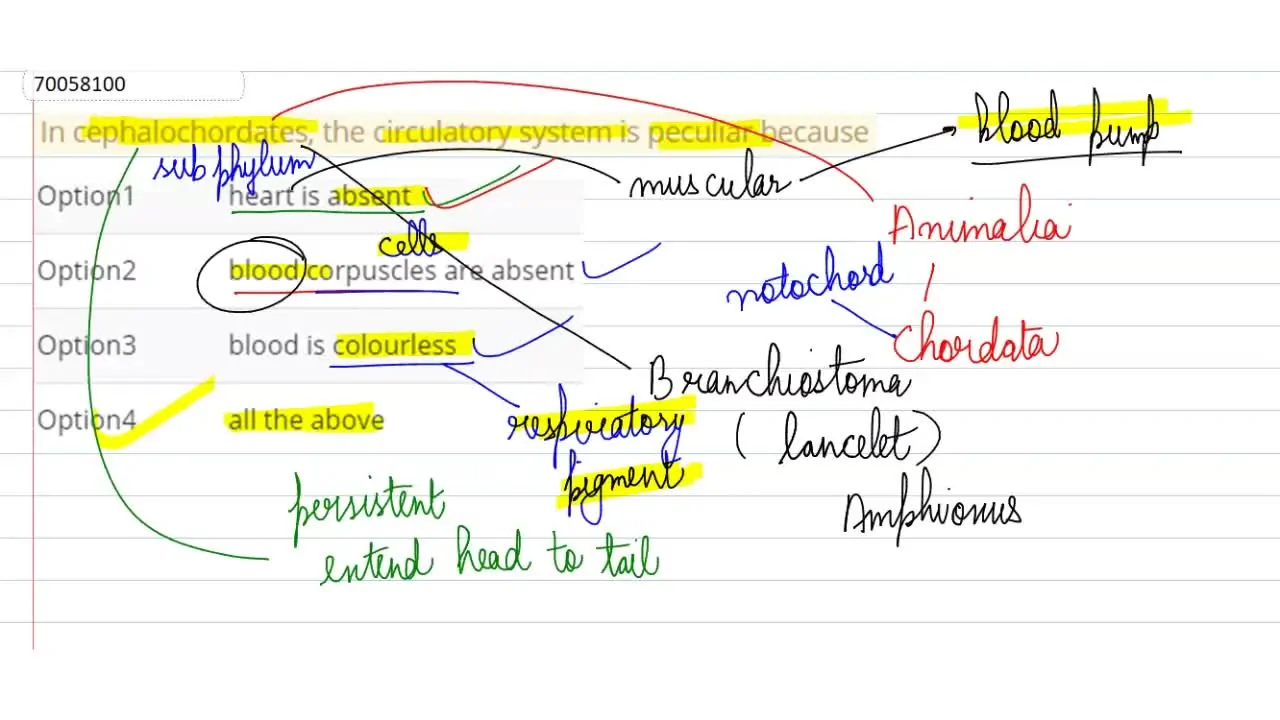 70058100
In cephalochordates, the circulatory system is peculiar because
blood pump
subphylum
muscular
Option1 heart is absent
Animalia
cells
Option2 blood corpuscles are absent
notochord
Option3 blood is colourless
Chordata
Branchiostoma
Option4 all the above
respiratory
(lancelet)
pigment
persistent
Amphioxus
extend head to tail